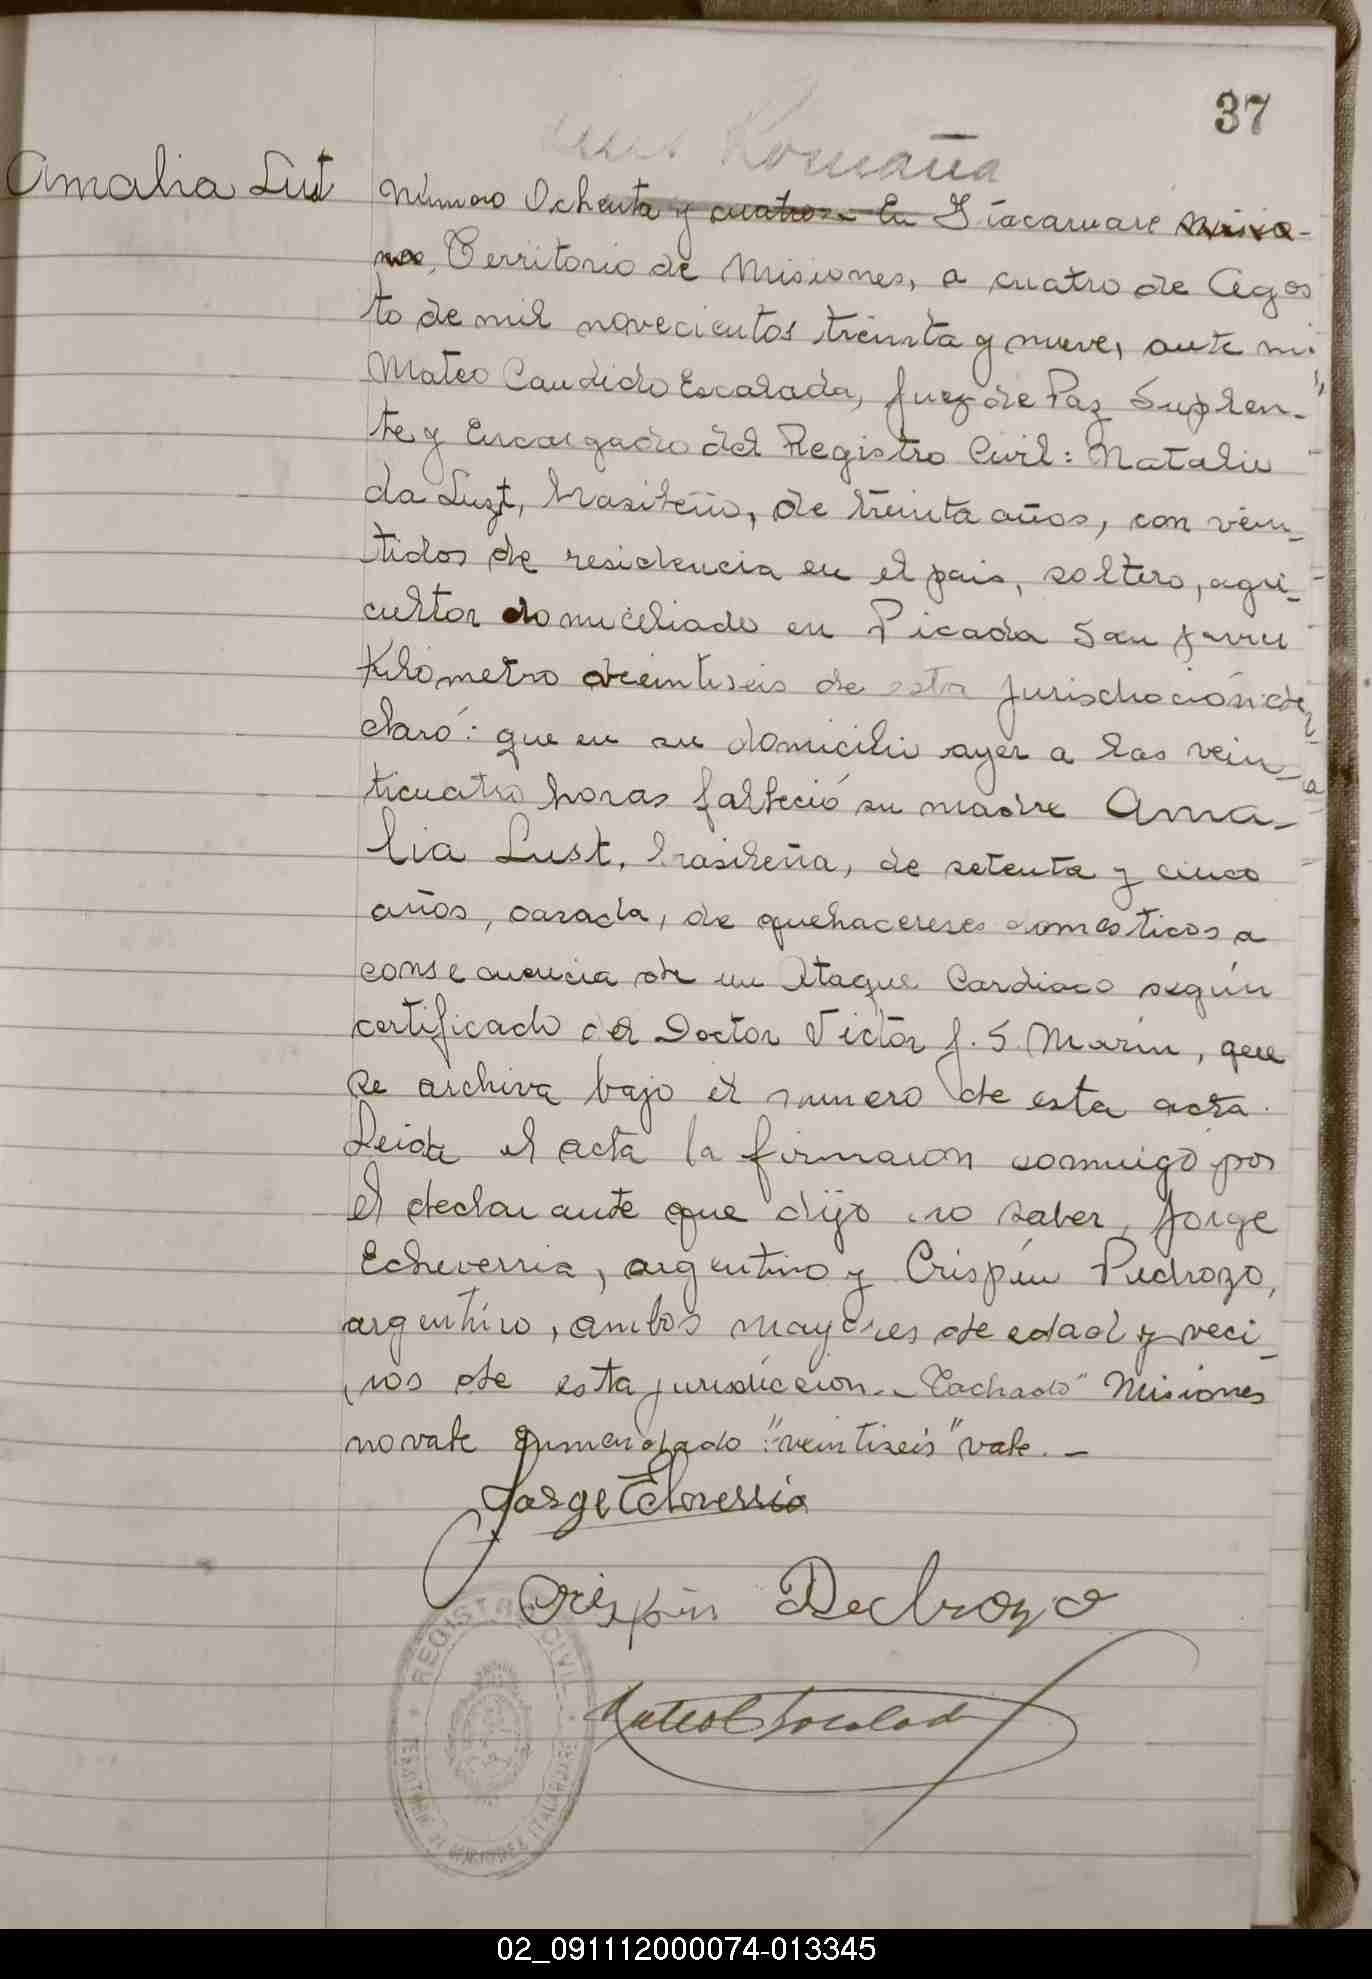 37
Romaña
Amalia Lust
Número Ochenta y cuatro.- En Itacaruaré Misio-
nes, Territorio de Misiones, a cuatro de Agos
to de mil novecientos treinta y nueve, ante mi
Mateo Candido Escalada, Juez de Paz Suplen-
te y Encargado del Registro Civil: Natalio
da Luzt, brasileño, de treinta años, con vein-
tidos de residencia en el pais, soltero, agri-
cultor domiciliado en Picada San Javier
Kilometro veintiseis de esta jurisdicción de
claró: que en su domicilio ayer a las vein-
ticuatro horas falleció su madre Ama-
lia Lust, brasileña, de setenta y cinco
años, casada, de quehaceres domesticos a
consecuencia de un Ataque Cardiaco según
certificado del Doctor Victor J. S. Marin, que
se archiva bajo el numero de esta acta.
Leida el acta la firmaron conmigo por
el declarante que dijo no saber, Jorge
Echeverria, argentino y Crispín Pedrozo,
argentino, ambos mayores de edad y veci-
nos de esta jurisdiccion.- Tachado" Misiones
no vale enmendado: "veintiseis" vale.-
Jorge Echeverria
Crispin Pedrozo
Mateo C Escalada
REGISTRO CIVIL
TERRITORIO DE MISIONES ITACARUARE
02_091112000074-013345